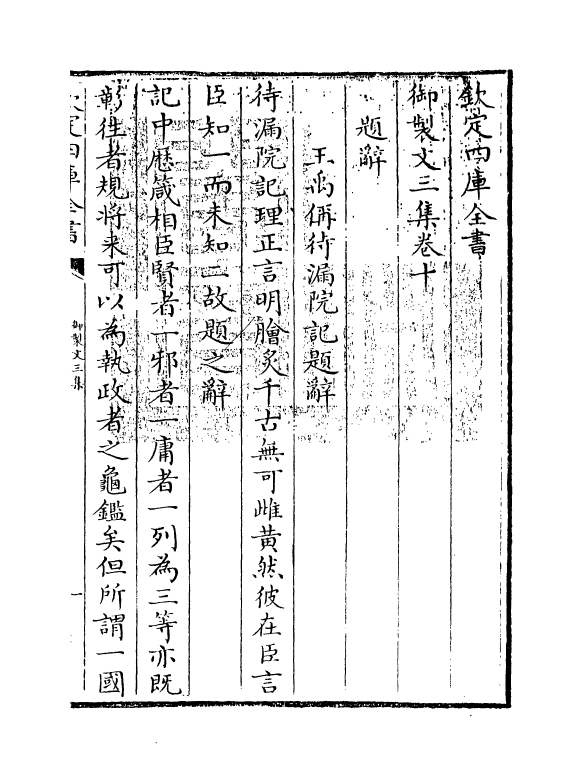 欽定四庫全書
御製文三集卷十
題辭
王禹偁待漏院記題辭
待漏院記理正言明膾炙千古無可雌黄然彼在臣言
臣知一而未知二故題之辭
記中歴箴相臣賢者一邪者一庸者一列為三等亦既
彰徃者規將来可以為執政者之龜鑑矣但所謂一國
欽定四庫全書
御製文三集
一